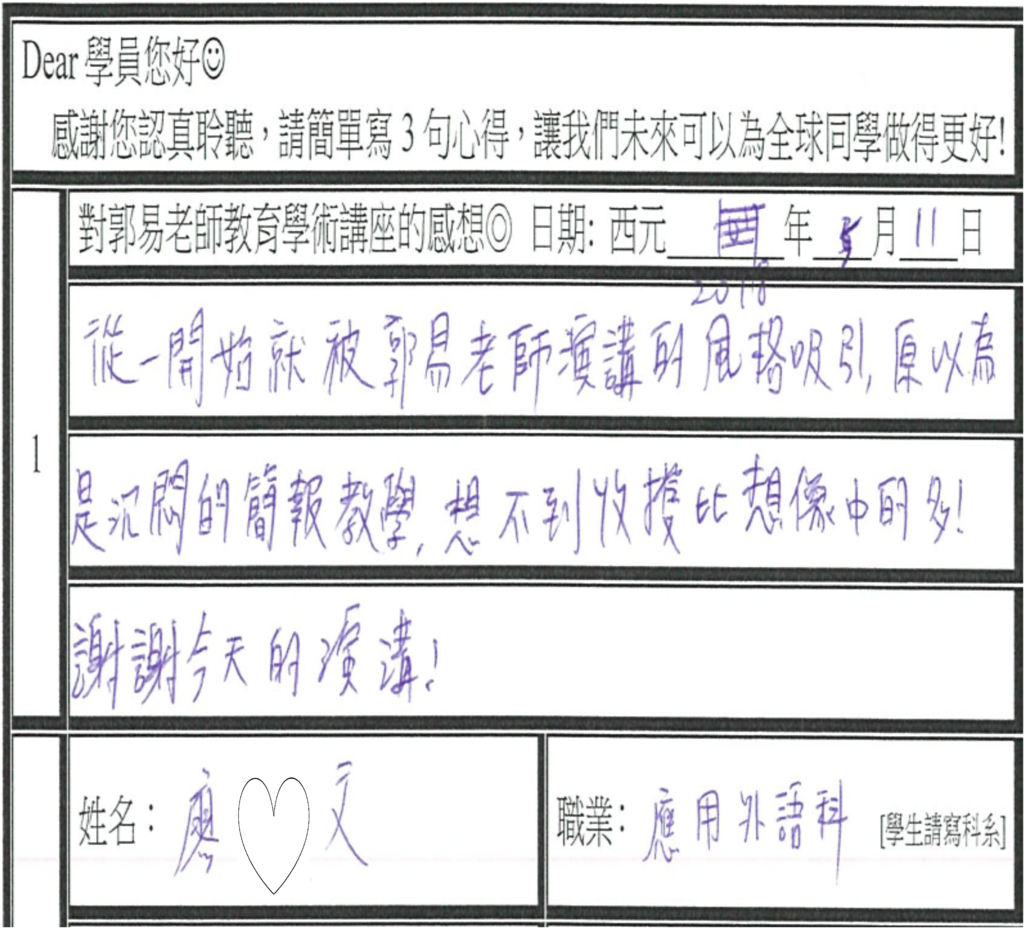 Dear 學員您好☺
感謝您認真聆聽，請簡單寫 3 句心得，讓我們未來可以為全球同學做得更好!
對郭易老師教育學術講座的感想◎ 日期: 西元 2018 年 5 月 11 日
1
從一開始就被郭易老師演講的風格吸引, 原以為
是沉悶的簡報教學, 想不到收獲比想像中的多!
謝謝今天的演講!
姓名： 廖♡文 職業： 應用外語科 [學生請寫科系]